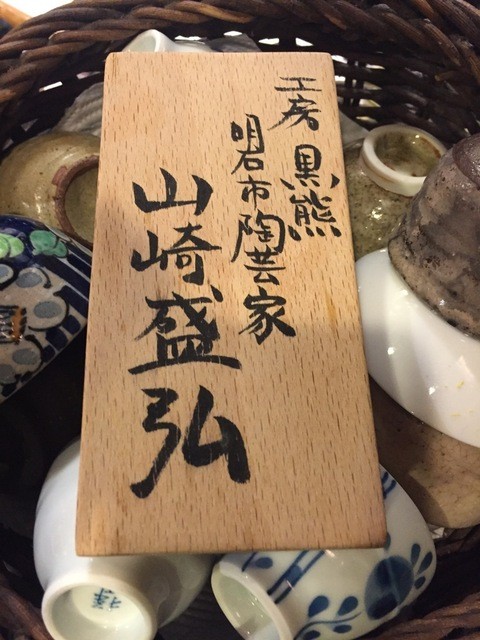 工房 黒熊
明石市陶芸家
山崎盛弘